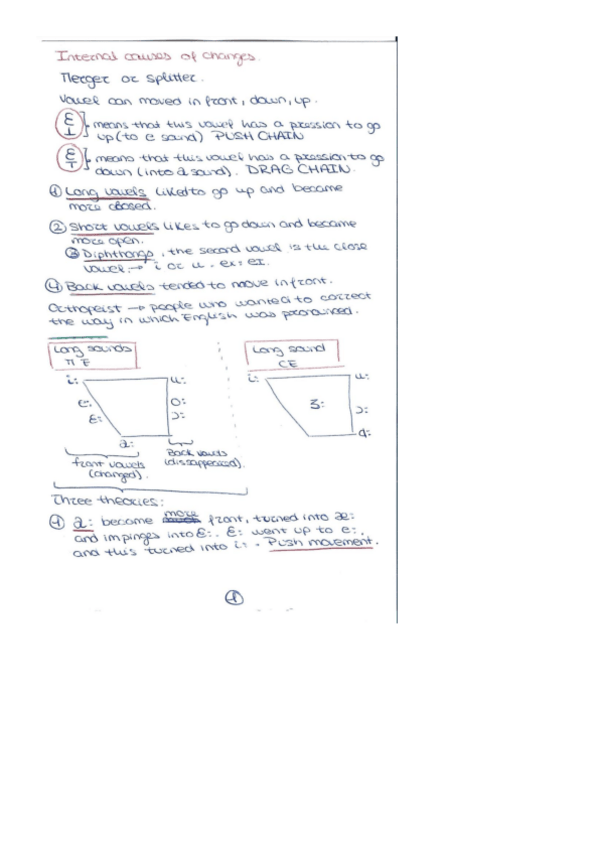 Internal causes of changes.
Merger or splitter.
Vowel can moved in front, down, up.
ɛ
⊥
means that this vowel has a pression to go
up (to e sound) PUSH CHAIN
ɛ
T
means that this vowel has a pression to go
down (into a sound). DRAG CHAIN.
① Long vowels liked to go up and became
more closed.
② Short vowels likes to go down and became
more open.
③ Diphthongs, the second vowel is the close
vowel → i or u. ex: eɪ.
④ Back vowels tended to move in front.
Orthopeist → people who wanted to correct
the way in which English was pronounced.
Long sounds
ME
i: u:
e: o:
ɛ: ɔ:
a:
front vowels
(changed).
Back vowels
(disappeared).
Long sound
CE
i: u:
ɜ: ɔ:
ɑ:
Three theories:
① a: become more front, turned into æ:
and impinges into ɛ:. ɛ: went up to e:,
and this turned into i:. Push movement.
①